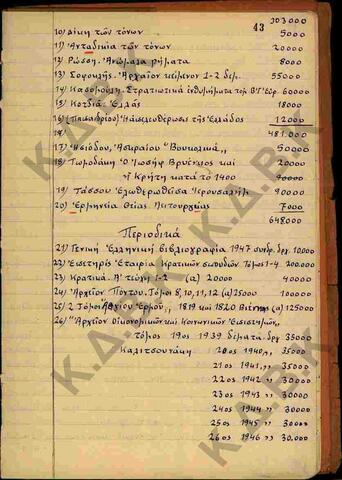 43 303000
10) Δίκη τῶν τόνων 5000
11) Ἀνταδικία τῶν τόνων 20000
12) Ρώσση. Ἀνώμαλα ρήματα 8000
13) Σοφουλῆς. Ἀρχαῖον κείμενον 1-2 δεμ. 55000
14) Κασομούλη. Στρατιωτικά ἐνθυμήματα 60000
15) Κοτζιᾶ. Ἑλλάς 18000
16) τῆς Ἑλλάδος 12000
481.000
17) Ἡσιόδου, Ἀσκραίου "Βουκολικά„ 50000
18) Τωμαδάκη. Ὁ Ἰωσήφ Βρυέννιος καὶ
ἡ Κρήτη κατά τό 1400 20000
19) Τάσσου Ἐλευθερωθεῖσα Ἱερουσαλήμ 90000
20) Ἑρμηνεία Θείας Λειτουργίας 7000
648000
Περιοδικά
21) Γενική Ἑλληνική βιβλιογραφία 1947 συνδρ. δρχ. 10.000
22) Ἐπετηρίς Ἑταιρία Κρητικῶν σπουδῶν Τόμοι 1-4. 200.000
23) Κρητικά. Α' τεύχη 1-2 (α) 20000 40000
24) Ἀρχεῖον Πόντου. Τόμοι 8,10,11,12 (α) 25000 100000
25) 2 Τόμοι Λογίου Ἑρμοῦ„ 1819 καὶ 1820 Βιέννης (α) 125000
26) "Ἀρχεῖον Οἰκονομικῶν καὶ Κοινωνικῶν Ἐπιστημῶν„
τόμος 19ος 1939 δέματα. δρχ 35000
Καλιτσουνάκη 20ος 1940 „ „ 35000
21ος 1941 „ „ 35000
22ος 1942 „ „ 30000
23ος 1943 „ „ 30000
24ος 1944 „ „ 30000
25ος 1945 „ „ 30000
26ος 1946 „ „ 30.000
Κ.Δ.Β.Κ
Κ.Δ.Β.Κ